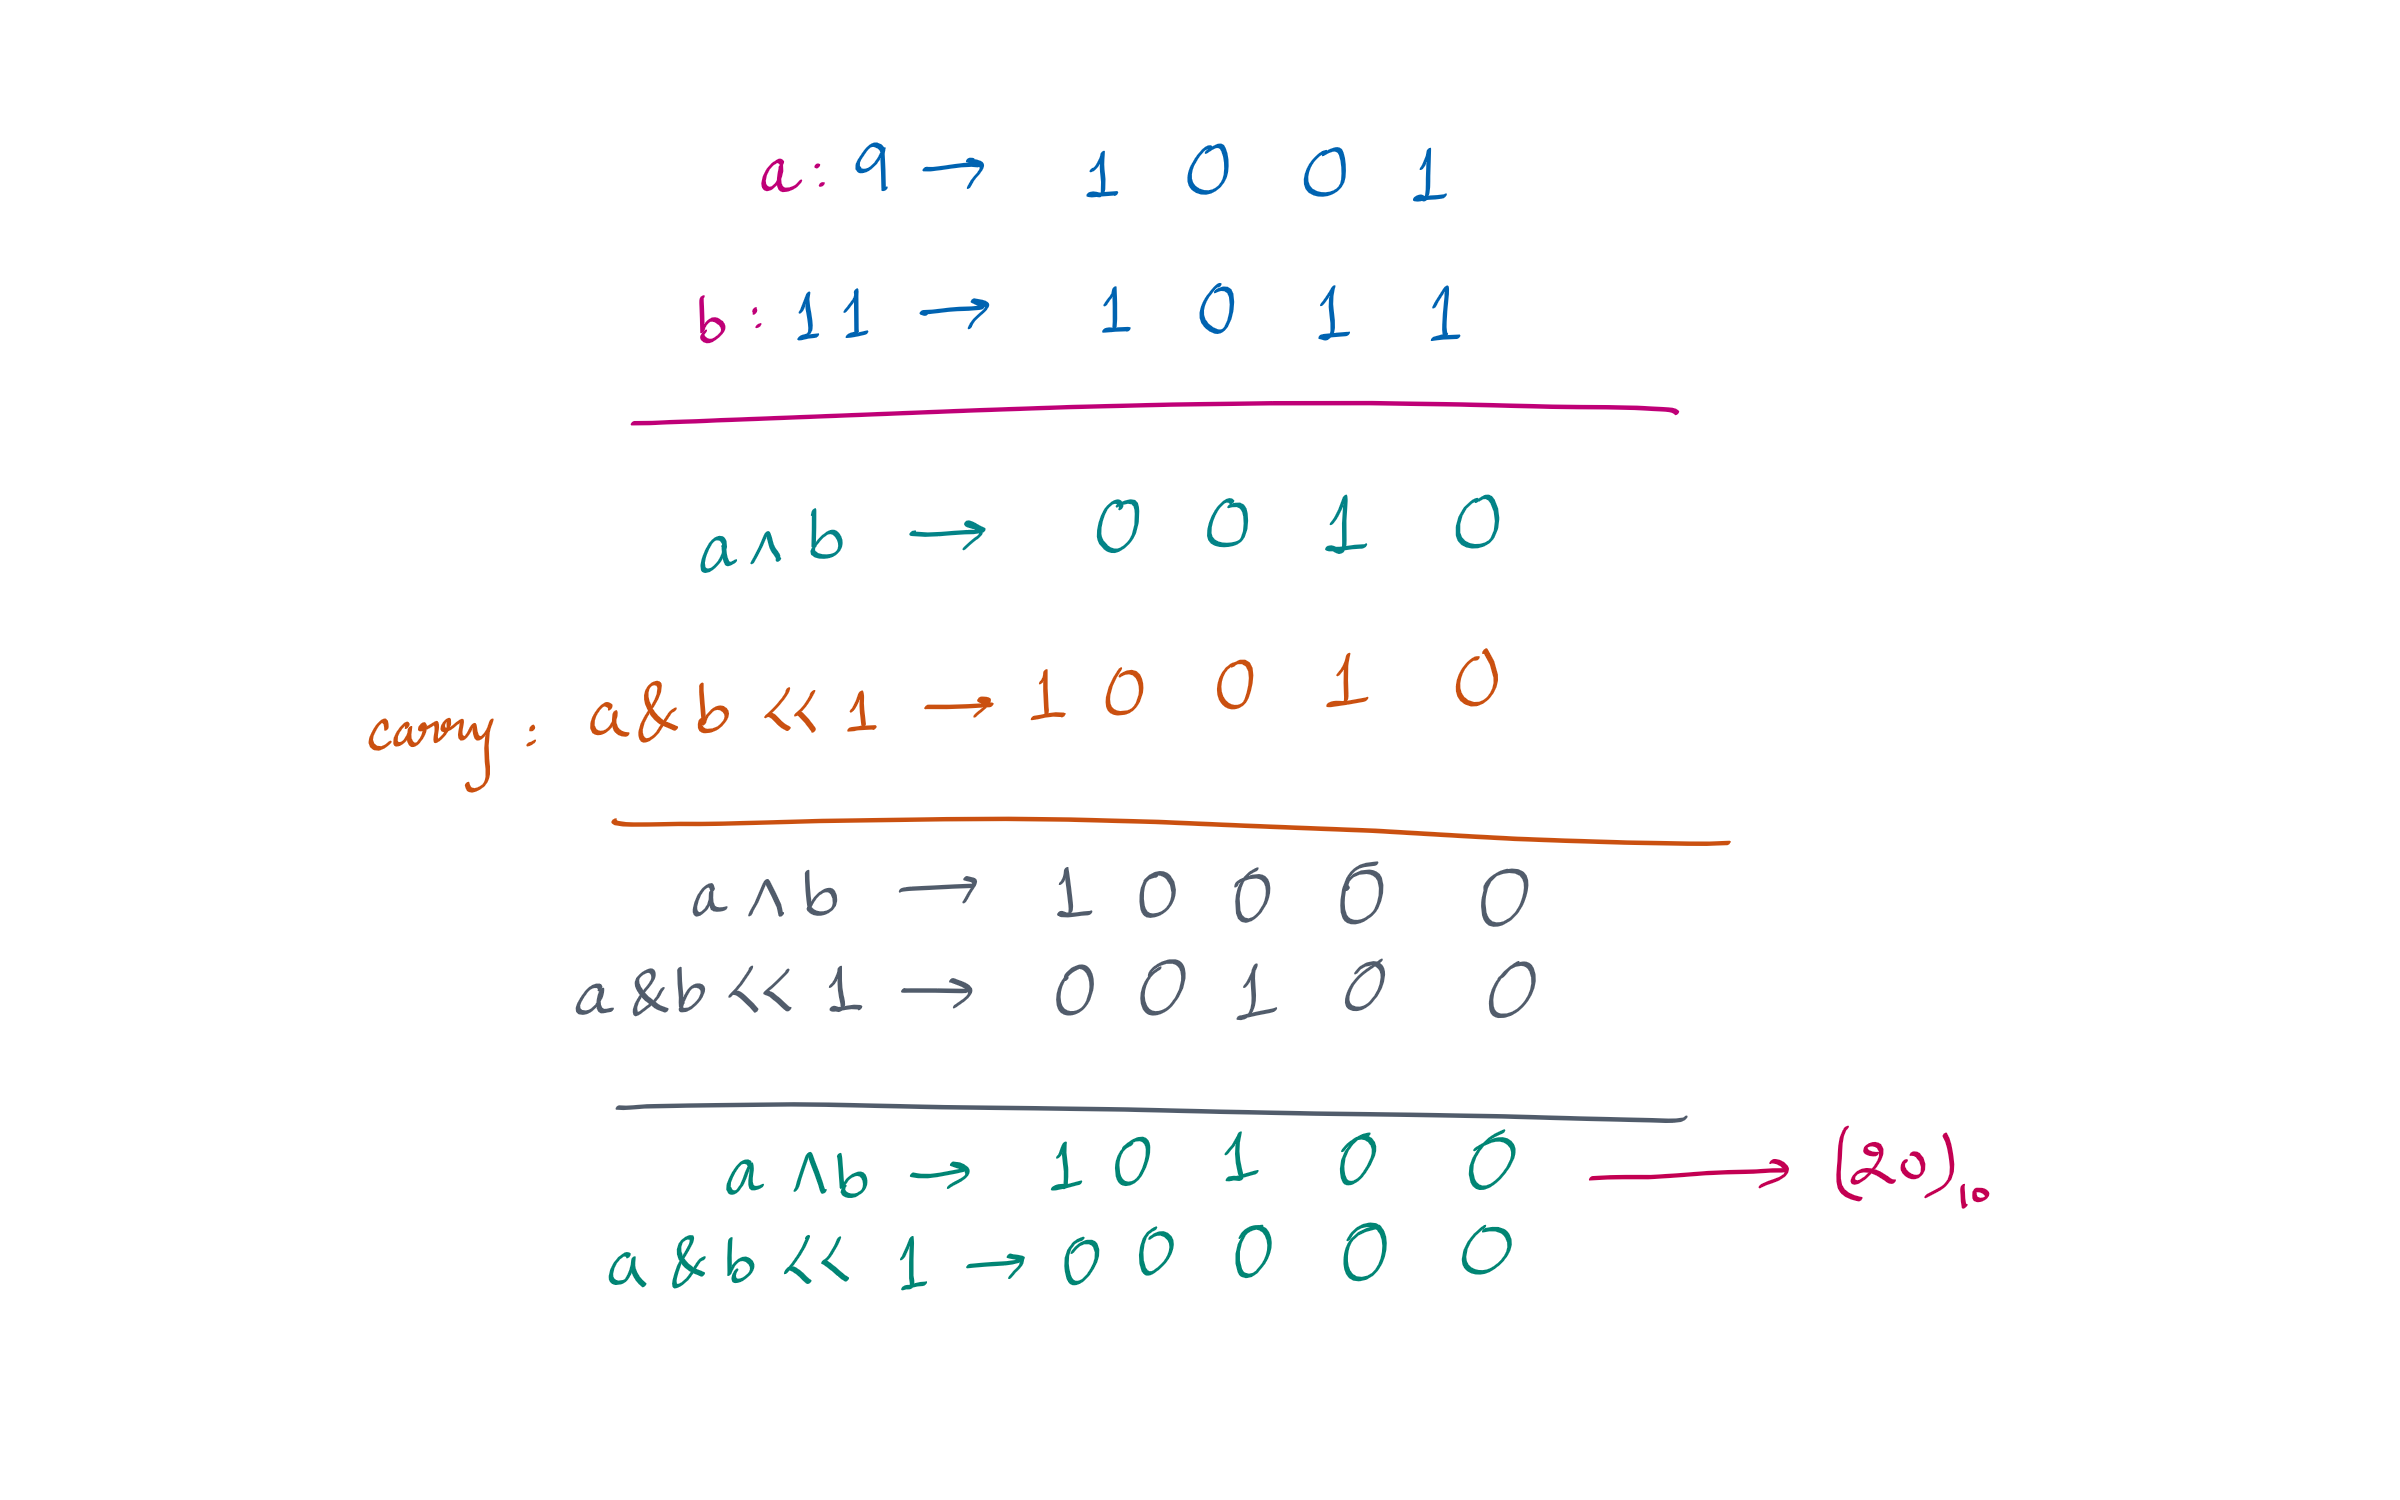 a: 9 → 1 0 0 1
b: 11 → 1 0 1 1
a ∧ b → 0 0 1 0
carry: a & b << 1 → 1 0 0 1 0
a ∧ b → 1 0 0 0 0
a & b << 1 → 0 0 1 0 0
a ∧ b → 1 0 1 0 0 → (20)₁₀
a & b << 1 → 0 0 0 0 0